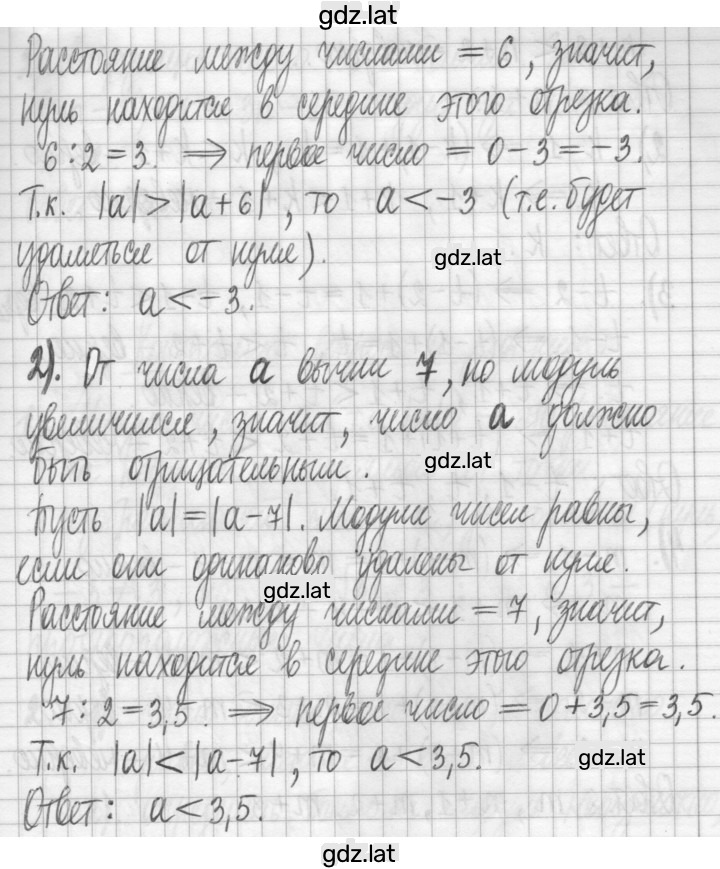 gdz.lat
Расстояние между числами = 6, значит,
нуль находится в середине этого отрезка.
6 : 2 = 3. ⇒ первое число = 0 - 3 = -3.
Т.к. |a| > |a + 6|, то a < -3 (т.е. будет
удаляться от нуля).
gdz.lat
Ответ: a < -3.
2). От числа a вычли 7, но модуль
увеличился, значит, число a должно
быть отрицательным.
gdz.lat
Пусть |a| = |a - 7|. Модули чисел равны,
если они одинаково удалены от нуля.
gdz.lat
Расстояние между числами = 7, значит,
нуль находится в середине этого отрезка.
7 : 2 = 3,5. ⇒ первое число = 0 + 3,5 = 3,5.
Т.к. |a| < |a - 7|, то a < 3,5.
gdz.lat
Ответ: a < 3,5.
gdz.lat